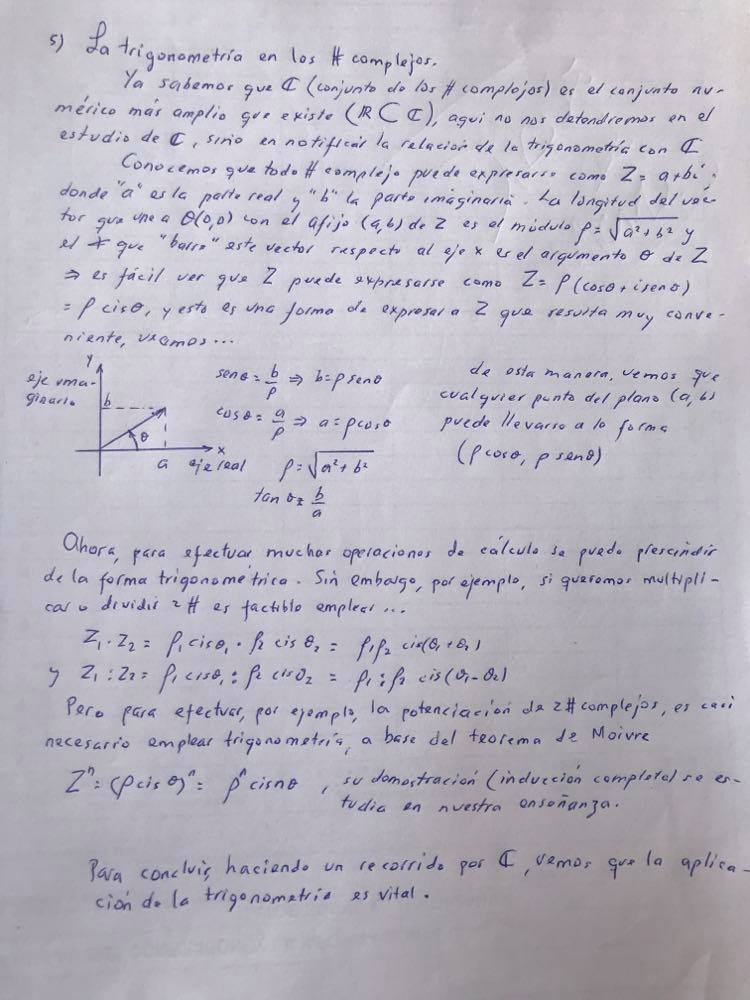 5) La trigonometría en los # complejos.
Ya sabemos que ℂ (conjunto de los # complejos) es el conjunto nu-
mérico más amplio que existe (ℝ ⊂ ℂ), aquí no nos detendremos en el
estudio de ℂ, sino en notificar la relación de la trigonometría con ℂ
Conocemos que todo # complejo puede expresarse como Z = a+bi,
donde "a" es la parte real y "b" la parte imaginaria. La longitud del vec-
tor que une a θ(0,0) con el afijo (a,b) de Z es el módulo ρ=√(a²+b²) y
el ∡ que "barre" este vector respecto al eje x es el argumento θ de Z
⇒ es fácil ver que Z puede expresarse como Z= ρ(cosθ + i senθ)
= ρ cisθ, y esto es una forma de expresar a Z que resulta muy conve-
niente, veamos...
y
eje ima-
ginario
b
θ
x
a eje real
senθ = b/ρ ⇒ b=ρ senθ
cosθ = a/ρ ⇒ a=ρcosθ
ρ=√(a²+b²)
tan θ= b/a
de esta manera, vemos que
cualquier punto del plano (a,b)
puede llevarse a la forma
(ρcosθ, ρ senθ)
Ahora, para efectuar muchas operaciones de cálculo se puede prescindir
de la forma trigonométrica. Sin embargo, por ejemplo, si queremos multipli-
car o dividir 2 # es factible emplear...
Z₁ · Z₂ = ρ₁cisθ₁ · ρ₂ cis θ₂ = ρ₁ρ₂ cis(θ₁+θ₂)
y Z₁ : Z₂ = ρ₁ cisθ₁ : ρ₂ cisθ₂ = ρ₁:ρ₂ cis(θ₁-θ₂)
Pero para efectuar, por ejemplo, la potenciación de 2 # complejos, es casi
necesario emplear trigonometría, a base del teorema de Moivre
Zⁿ = (ρ cis θ)ⁿ = ρⁿ cisnθ, su demostración (inducción completa) se es-
tudia en nuestra enseñanza.
Para concluir haciendo un recorrido por ℂ, vemos que la aplica-
ción de la trigonometría es vital.